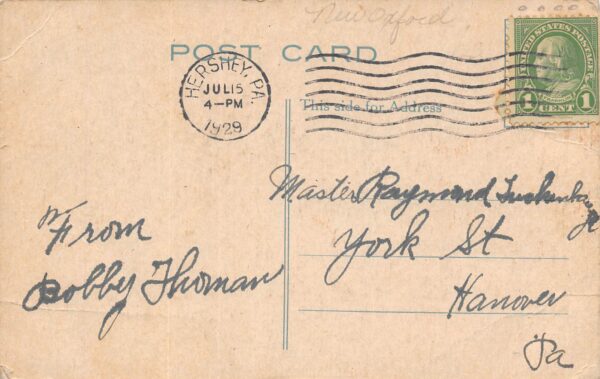 New Oxford
POST CARD
HERSHEY, PA.
JUL 15
4-PM
1929
UNITED STATES POSTAGE
FRANKLIN
1 CENT 1
This side for Address
Master Raymond
Jr
York St
Hanover
Pa
From
Bobby Thoman